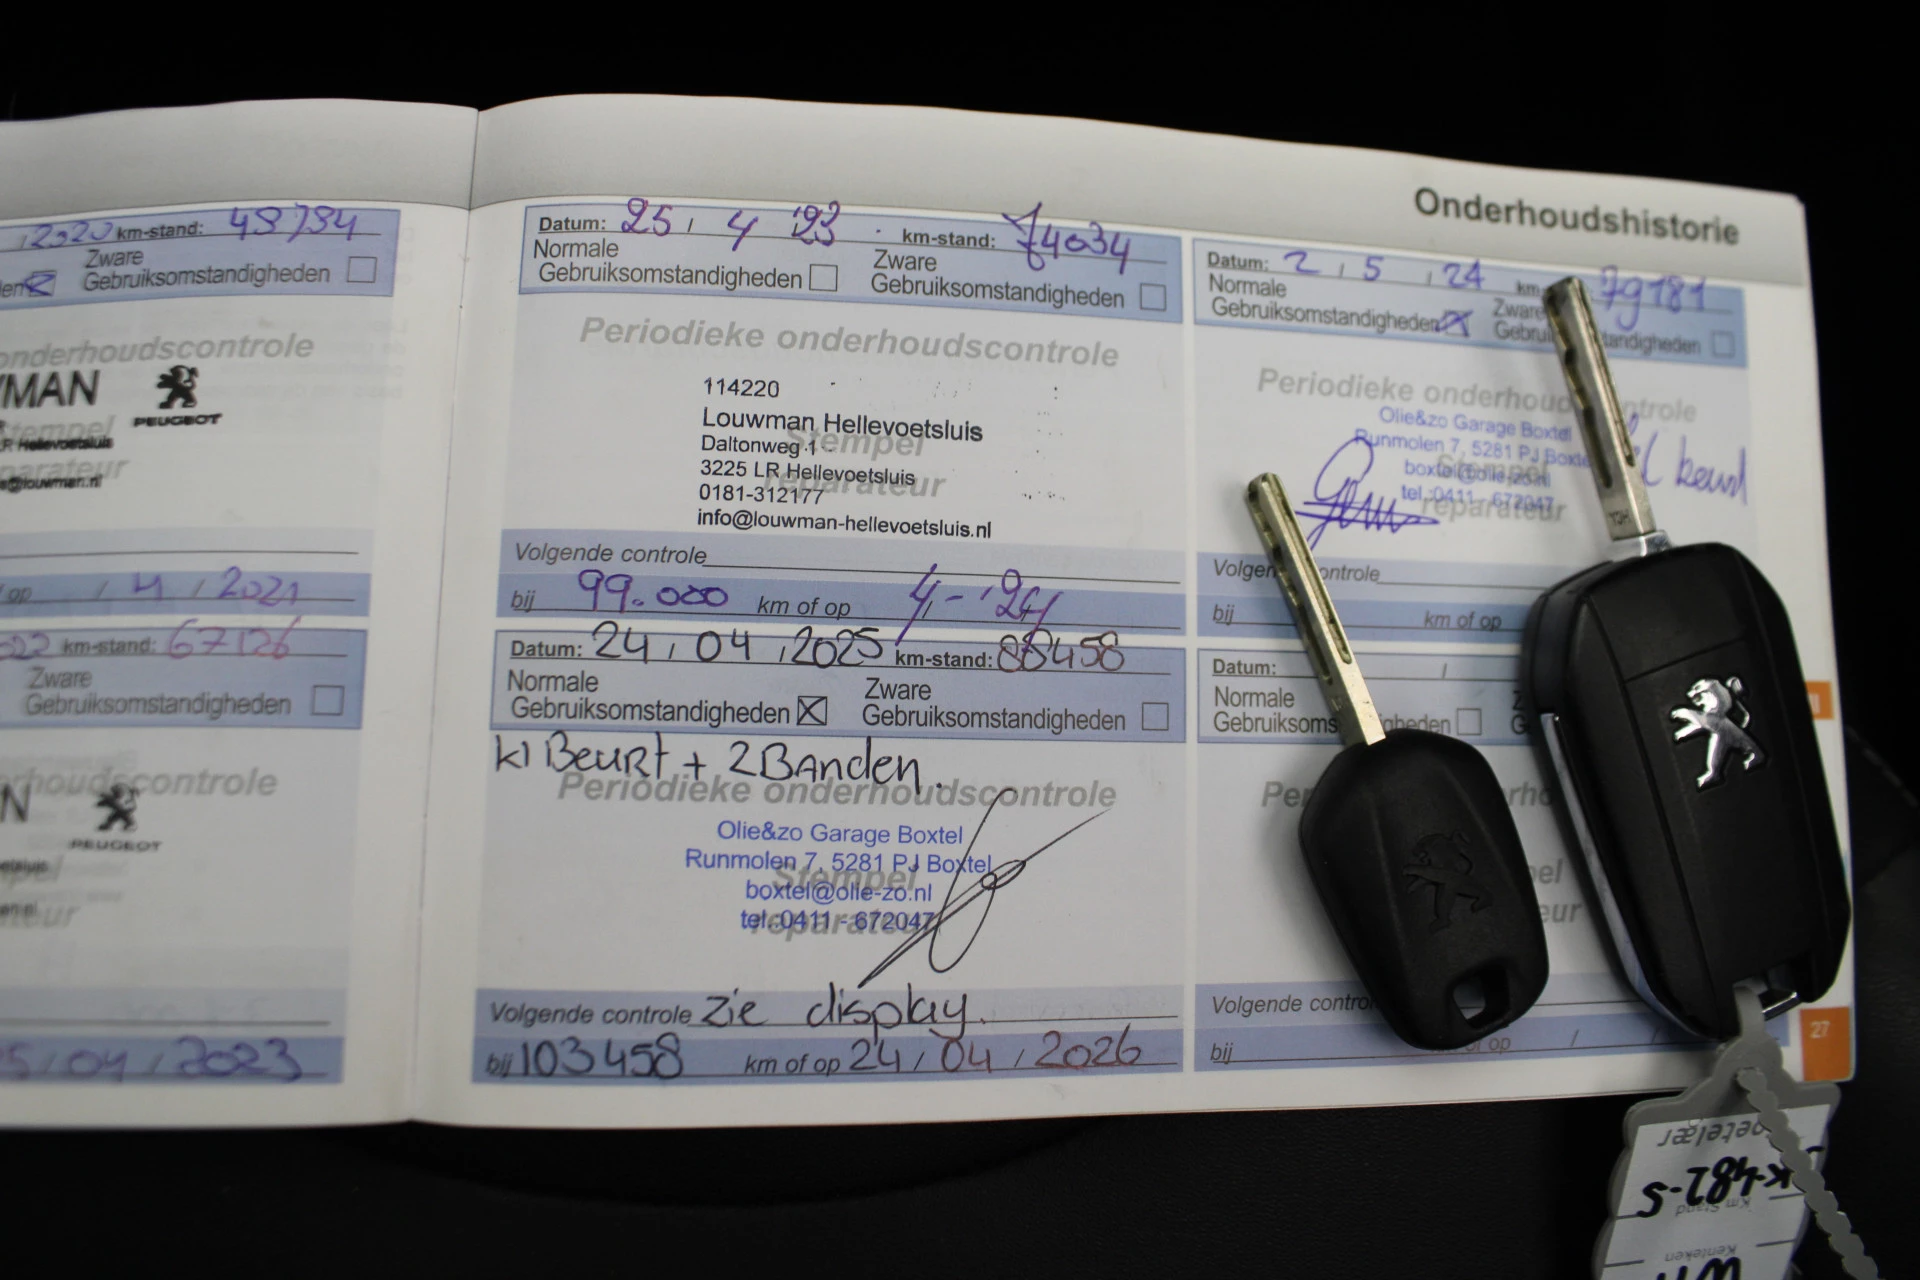 Onderhoudshistorie
2020 km-stand: 48734
Zware
Gebruiksomstandigheden
onderhoudscontrole
WMAN
PEUGEOT
Stempel
LR Hellevoetsluis
reparateur
@louwman.nl
op / 4 / 2021
km-stand: 67126
Zware
Gebruiksomstandigheden
onderhoudscontrole
N
PEUGEOT
04 / 2023
Datum: 25 / 4 '23 km-stand: 74034
Normale
Gebruiksomstandigheden
Zware
Gebruiksomstandigheden
Periodieke onderhoudscontrole
114220
Louwman Hellevoetsluis
Stempel
Daltonweg 1
3225 LR Hellevoetsluis
reparateur
0181-312177
info@louwman-hellevoetsluis.nl
Volgende controle
bij 99.000 km of op 4 - '24
Datum: 24 / 04 / 2025 km-stand: 88458
Normale
Gebruiksomstandigheden
Zware
Gebruiksomstandigheden
kl Beurt + 2 Banden.
Periodieke onderhoudscontrole
Olie&zo Garage Boxtel
Runmolen 7, 5281 PJ Boxtel
Stempel
boxtel@olie-zo.nl
tel.:0411 - 672047
reparateur
Volgende controle zie display.
bij 103458 km of op 24 / 04 / 2026
Datum: 2 / 5 / 24 km 79181
Normale
Gebruiksomstandigheden
Zware
Periodieke onderhoudscontrole
Olie&zo Garage Boxtel
Runmolen 7, 5281 PJ Boxtel
Stempel
boxtel@olie-zo.nl
tel.:0411 - 672047
reparateur
Volgende controle
bij km of op
Datum: /
Normale
Gebruiksomstandigheden
Volgende controle
bij km of op / /
27
K-482-S
Km Stand
Kenteken